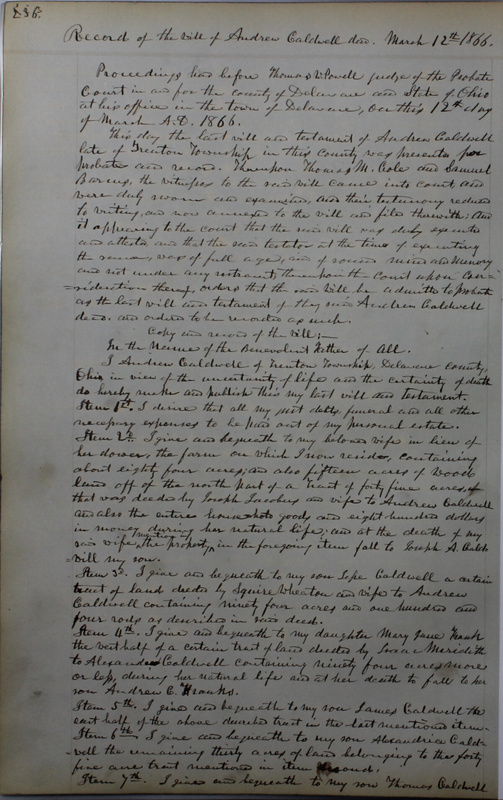 236.
Record of the will of Andrew Caldwell decd. March 12th 1866.
Proceedings had before Thomas W Powell judge of the Probate
Court in and for the county of Delaware and State of Ohio
at his office in the town of Delaware, on this 12th day
of March A.D. 1866.
This day the last will and testament of Andrew Caldwell
late of Trenton Township in this county was presented for
probate and record. Thereupon Thomas M. Cole and Samuel
the witnesses to the said will came into court, and
were duly sworn and examined, and their testimony reduced
to writing, and now annexed to the will and filed therewith: And
it appearing to the court that the said will was duly executed
and attested and that the said testator at the time of executing
the same, was of full age, and of sound mind and memory
and not under any restraint, thereupon the Court upon con=
=sideration thereof, orders that the said will be admitted to probate
as the last will and testament of the said Andrew Caldwell
decd. and ordered to be recorded as such.
Copy and record of the Will:—
In the Name of the Benevolent Father of All.
I Andrew Caldwell of Trenton Township, Delaware County,
Ohio in view of the uncertainty of life and the certainty of death
do hereby make and publish this my last will and testament.
Item 1st. I desire that all my just debts, funeral and all other
necessary expenses to be paid out of my personal estate.
Item 2d. I give and bequeath to my beloved wife in lieu of
her dower, the farm on which I now reside, containing
about eighty four acres; and also fifteen acres of wood
land off of the north part of a tract of forty five acres,
that was deeded by Joseph Jacobus and wife to Andrew Caldwell
and also the entire household goods and eight hundred dollars
in money during her natural life; and at the death of my
said wife, the property mentioned in the foregoing item fall to Joseph A. Cald=
=well my son.
Item 3d. I give and bequeath to my son Caldwell a certain
tract of land deeded by Squire Wheaton and wife to Andrew
Caldwell containing ninety four acres and one hundred and
four rods as described in said deed.
Item 4th. I give and bequeath to my daughter Mary Jane
the west half of a certain tract of land deeded by Isaac Merideth
to Alexander Caldwell containing ninety four acres more
or less, during her natural life and at her death to fall to her
son Andrew C.
Item 5th. I give and bequeath to my son James Caldwell the
east half of the above described tract in the last mentioned item.
Item 6th. I give and bequeath to my son Alexandria Cald=
=well the remaining thirty acres of land belonging to this forty
five acre tract mentioned in item second.
Item 7th. I give and bequeath to my son Thomas Caldwell